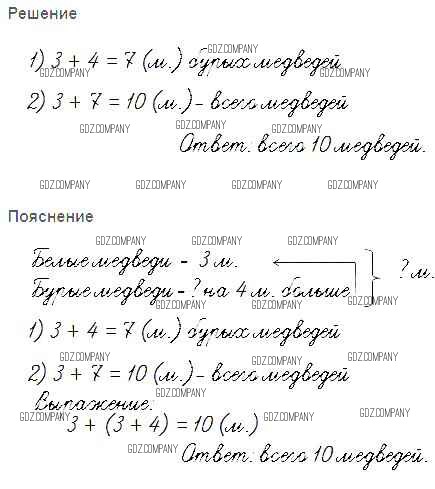 Решение
1) 3 + 4 = 7 (м.) бурых медведей
2) 3 + 7 = 10 (м.) - всего медведей
Ответ: всего 10 медведей.
Пояснение
Белые медведи - 3 м.
Бурые медведи - ? на 4 м. больше
? м.
1) 3 + 4 = 7 (м.) бурых медведей
2) 3 + 7 = 10 (м.) - всего медведей
Выражение:
3 + (3 + 4) = 10 (м.)
Ответ: всего 10 медведей.
GDZ.COMPANY